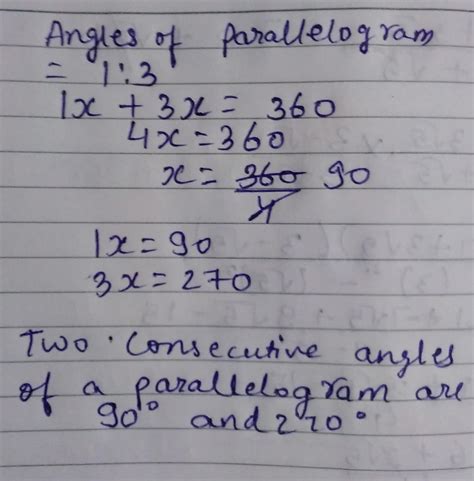 Angles of parallelogram
= 1:3
1x + 3x = 360
4x = 360
x = 360/4 90
1x = 90
3x = 270
Two consecutive angles
of a parallelogram are
90° and 270°